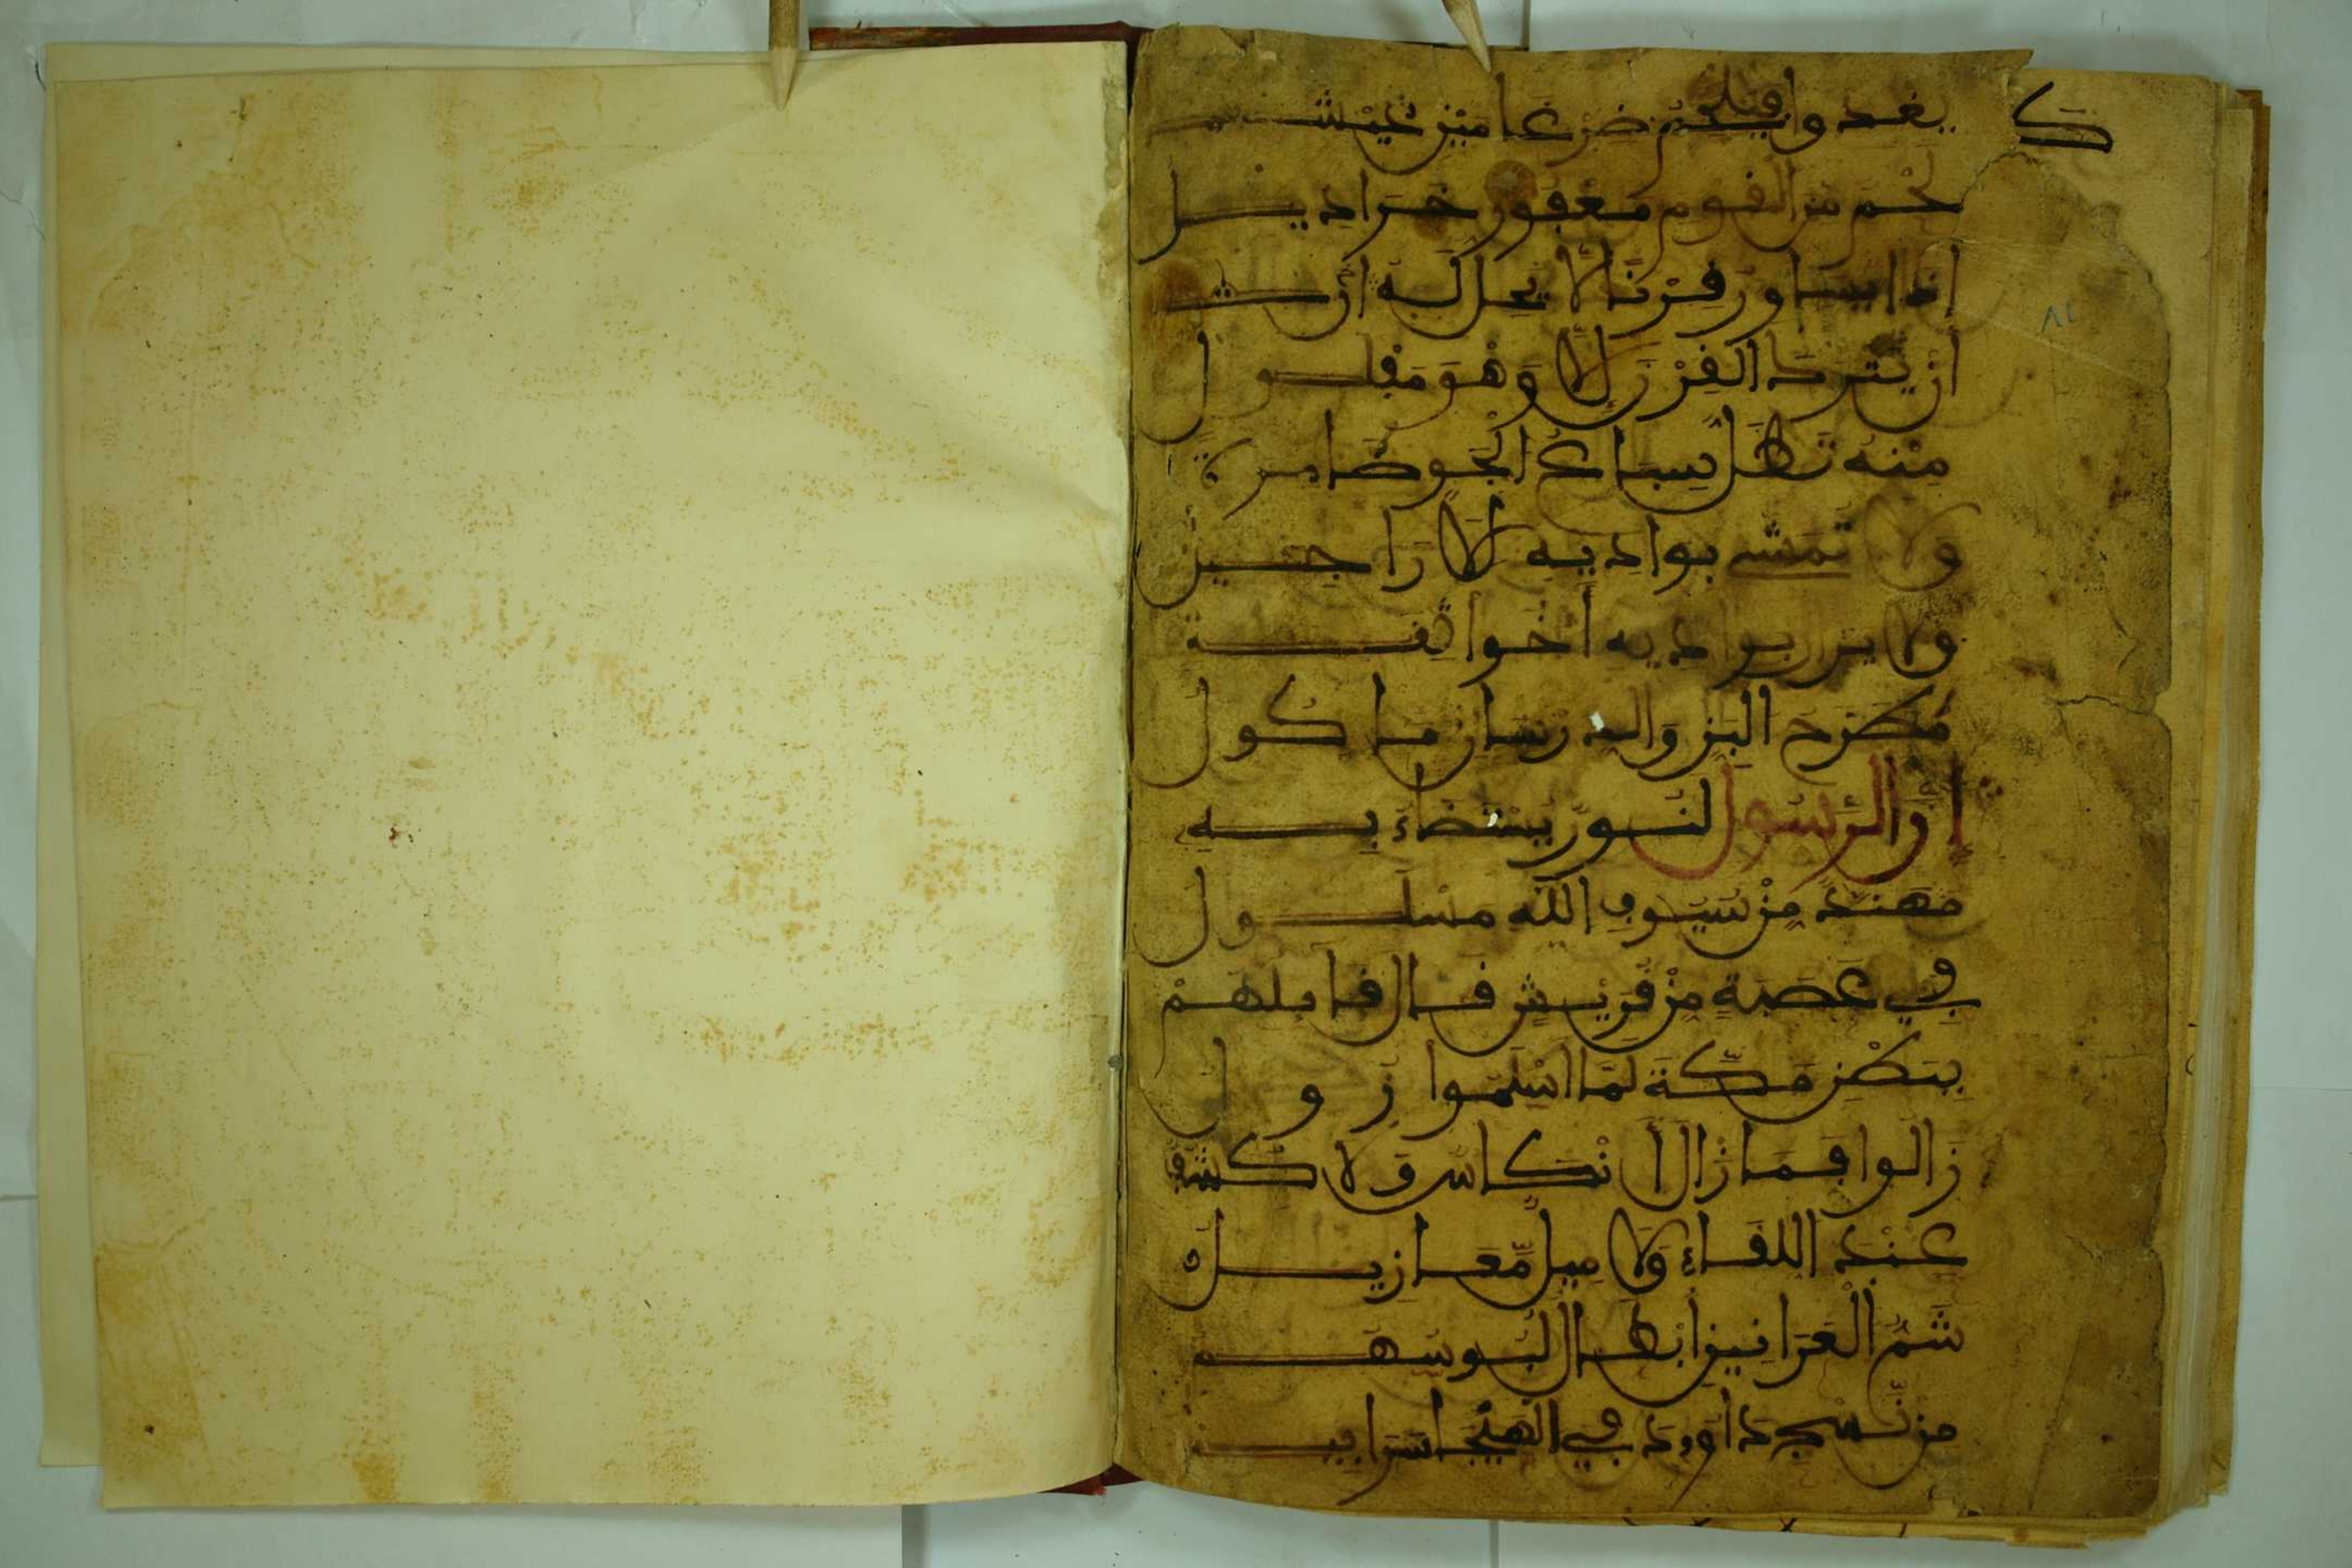 ك
يغدوا فيلحم ضرغامين عيشهم
لحم من القوم معفور خراديل
اذا يساور قرنا لا يحل له ان
ان يترد القرن إلا وهو مفلول
منه تظل سباع الجو ضامرة
ولا تمشي بواديه الاراجيل
ولا يزال بواديه أخوا ثقة
مطرح البز والدرسان ماكول
إن الرسول لنور يستضاء به
مهند من سيوف الله مسلول
في عصبة من قريش قال قايلهم
ببطن مكة لما اسلموا زولوا
زالوا فما زال أنكاس ولا كشف
عند اللقاء ولا ميل معازيل
شم العرانين ابطال لبوسهم
من نسج داوود في الهيجا سرابيل
٨١